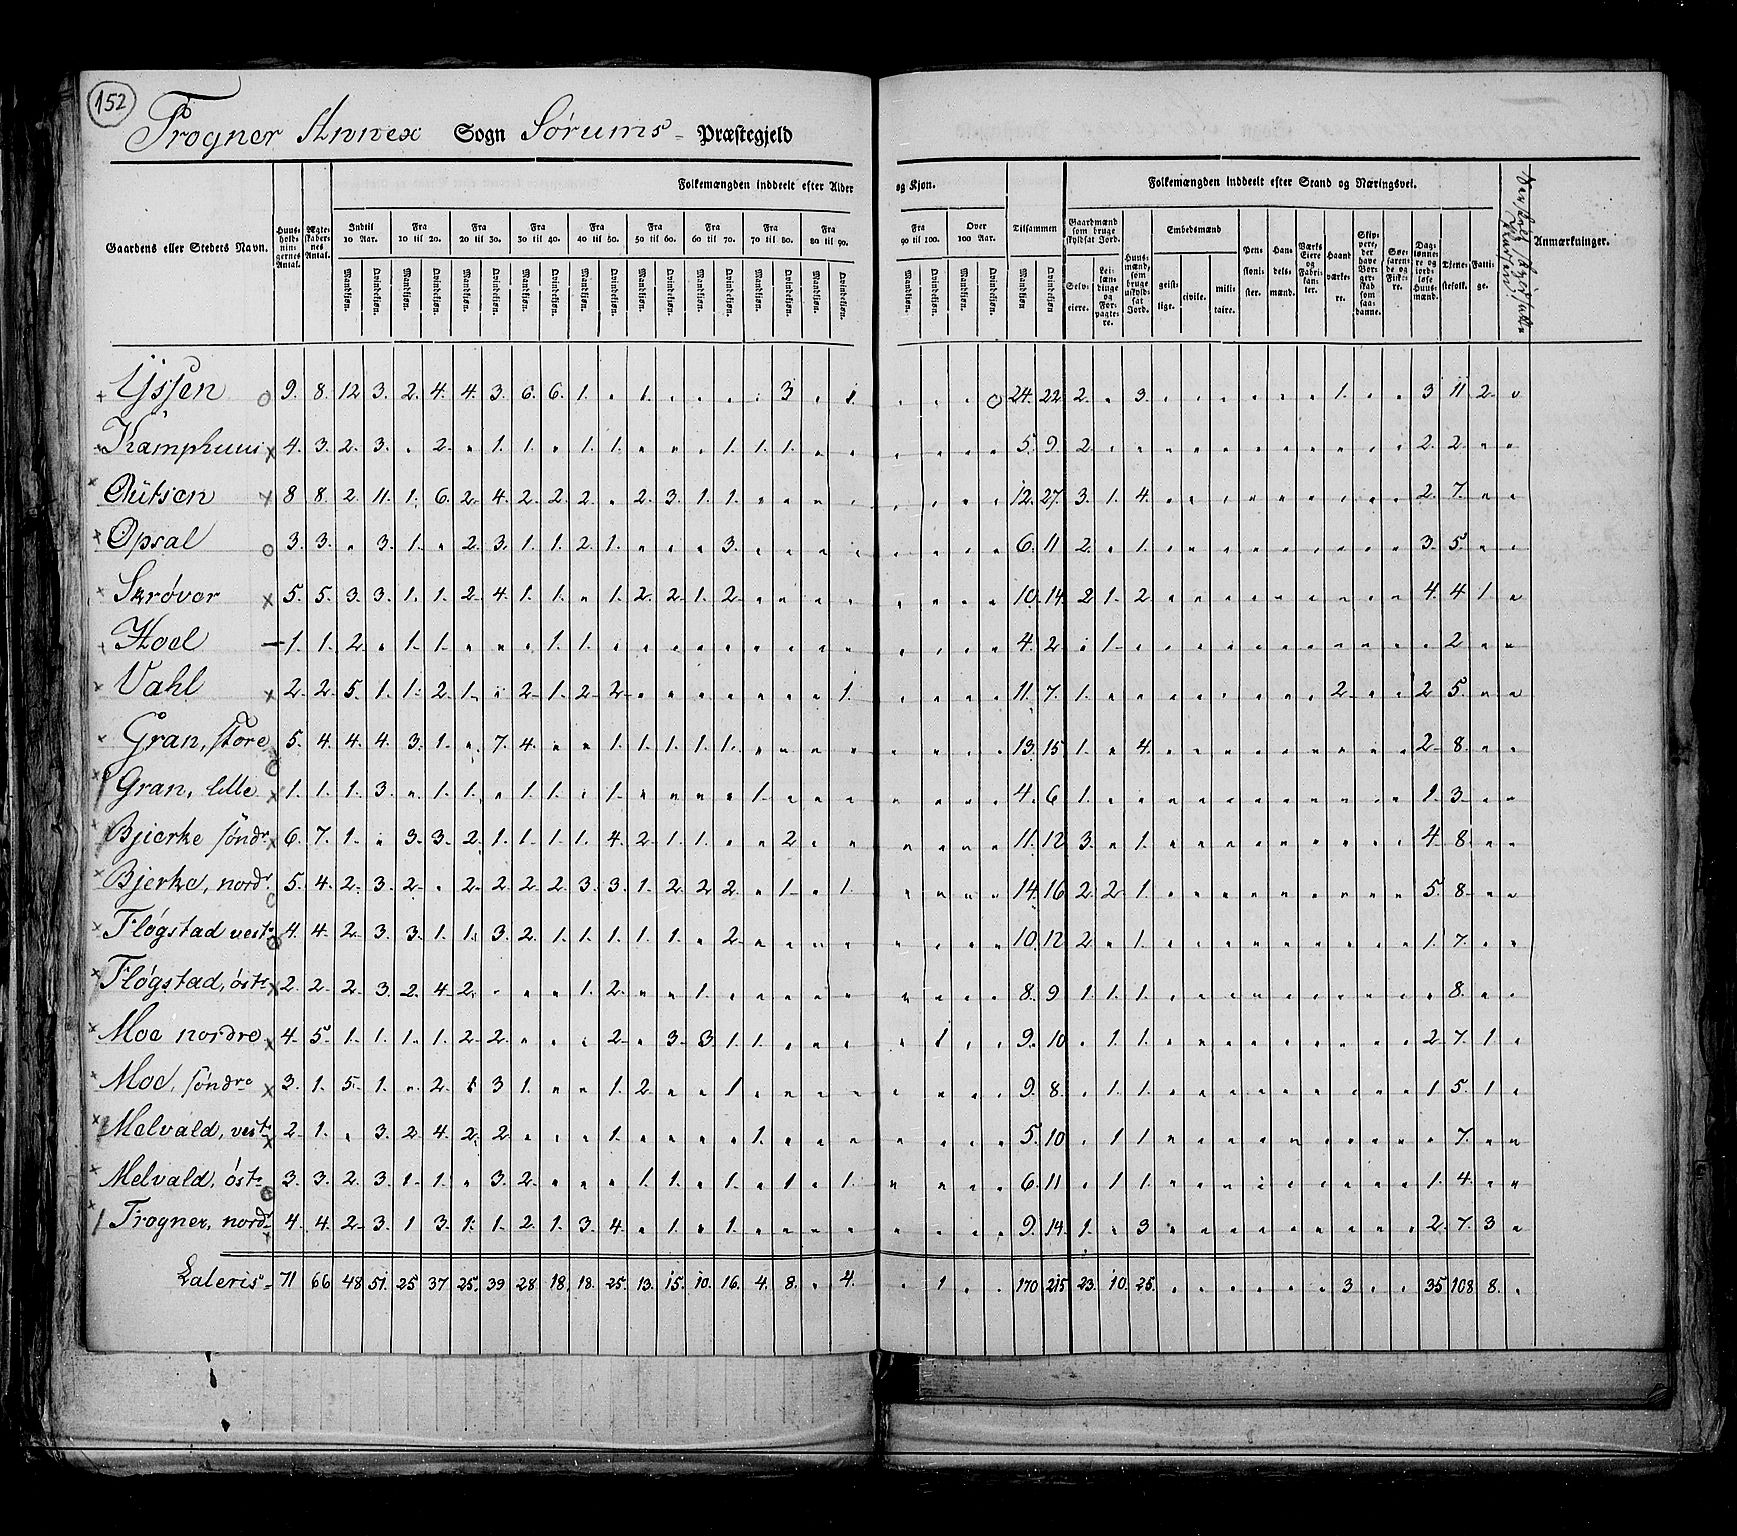 152
Frogner Annex Sogn Sørums- Præstegjeld
Folkemængden inddeelt efter Alder og Kjøn. Folkemængden inddeelt efter Stand og Næringsvei.
Gaardens eller Stedets Navn. Huusholdningernes Antal. Ægteskabernes Antal. Indtil 10 Aar. Fra 10 til 20. Fra 20 til 30. Fra 30 til 40. Fra 40 til 50. Fra 50 til 60. Fra 60 til 70. Fra 70 til 80. Fra 80 til 90. Fra 90 til 100. Over 100 Aar. Tilsammen Gaardmænd som bruge skyldsat Jord. Selveiere. Leilændinge og Forpagtere. Huusmænd, som bruge uskyldsat Jord. Embedsmænd geistlige. civile. militaire. Pensionister. Handelsmænd. Værks Eiere og Fabrikanter. Haandværkere. Skippere, der have Borgerskab som saadanne. Søefarende og Fiskere. Daglønnere og jordløse Huusmænd. Tjenestefolk. Fattige. Anmærkninger.
Mandkjøn. Qvindekjøn. Mandkjøn. Qvindekjøn. Mandkjøn. Qvindekjøn. Mandkjøn. Qvindekjøn. Mandkjøn. Qvindekjøn. Mandkjøn. Qvindekjøn. Mandkjøn. Qvindekjøn. Mandkjøn. Qvindekjøn. Mandkjøn. Qvindekjøn. Mandkjøn. Qvindekjøn. Mandkjøn. Qvindekjøn. Mandkjøn Qvindekjøn.
Yssen 9. 8. 12 3. 2. 4. 4. 3. 6. 6. 1. . 1. . . . . 3. . 1. . . . . 24. 22 2. . 3. . . . . . . 1. . . 3 11 2. .
Kamphuus 4. 3. 2. 3. . 2. . 1. 1. . 1. 1. . . 1. 1. 1. . . . . . . 5. 9. 2. . . . . . . . . . . . 2. 2. . .
Outsen 8 8. 2. 11. 1. 6. 2. 4. 2. 2. 2. . 2. 3. 1. 1. . . . . . . . . 12. 27. 3. 1. 4. . . . . . . . . . 2. 7. . .
Opsal 3. 3. . 3. 1. . 2. 3. 1. 1. 2. 1. . . . 3. . . . . . . . . 6. 11 2. . 1. . . . . . . . . . 3. 5. . .
Skrøver 5. 5. 3. 3. 1. 1. 2. 4. 1. 1. . 1. 2. 2. 1. 2. . . . . . . . . 10. 14. 2. 1. 2. . . . . . . . . . 4. 4. 1. .
Hoel 1. 1. 2. . 1. 1. . . . 1. 1. . . . . . . . . . . . . . 4. 2. . 1. . . . . . . . . . . . 2. . .
Vahl 2. 2. 5. 1. 1. 2. 1. . 2. 1. 2. 2. . . . . . . . 1. . . . . 11. 7. 1. . . . . . . . . 2. . . 2. 5. . .
Gran, store 5. 4. 4. 4. 3. 1. . 7. 4. . . 1. 1. 1. 1. 1. . . . . . . . . 13. 15. 1. . 4. . . . . . . . . . 2. 8. . .
Gran, lille 1. 1. 1. 3. . 1. 1. . 1. 1. . 1. . . . . 1. . . . . . . . 4. 6. 1. . . . . . . . . . . . 1. 3. . .
Bjerke søndr 6. 7. 1. . 3. 3. 2. 1. 1. 1. 1. 4. 2. 1. 1. . . 2. . . . . . . 11. 12. 3. . 1. . . . . . . . . . 4. 8. . .
Bjerke, nordr 5. 4. 2. 3. 2. . 2. 2. 2. 2. 3. 3. 1. 2. 2. 2. . 1. . 1. . . . . 14. 16 2. 2. 1. . . . . . . . . . 5. 8. . .
Fløgstad vest. 4. 4. 2. 3. 3. 1. 1. 3. 2. 1. 1. 1. 1. 1. . 2. . . . . . . . . 10. 12 2. . 1. . . . . . . . . . 1. 7. . .
Fløgstad, øst. 2. 2. 2. 3. 2. 4. 2. . . . 1. 2. . . 1. . . . . . . . . . 8. 9. 1. 1. 1. . . . . . . . . . . 8. . .
Moe nordre 4. 5. 1. 1. 1. 1. 2. 2. . . . 2. . 3. 3 1. 1. . . . . 1. . . 9. 10. . 1. 1. . . . . . . . . . 2. 7. 1. .
Moe, søndre 3. 1. 5. 1. . 2. 1 3. 1. . . 1. 2. . . 1. . . . . . . . . 9. 8. . 1. 1. . . . . . . . . . 1. 5. 1. .
Melvald, vest. 2. 1. . 3. 2. 4. 2. 2. . . . 1. . . . . 1. . . . . . . . 5. 10. . 1. 1. . . . . . . . . . . 7. . .
Melvald, øst. 3. 3. 2. 3. 1. 1. . 3. 2. . . . 1. 1. . 1. . 1. . 1. . . . . 6. 11. . 1. 1. . . . . . . . . . 1. 4. . .
Frogner, nordr 4. 4. 2. 3. 1 3. 1. 1. 2. 1. 3. 4. . 1. . 1. . . . . . . . . 9. 14. 1. . 3. . . . . . . . . . 2. 7. 3. .
Lateris- 71 66 48 51. 25 37 25. 39 28 18. 18. 25. 13. 15. 10. 16. 4. 8. . 4. . 1. . . 170 215 23. 10. 25. . . . . . . 3 . . 35 108 8. .